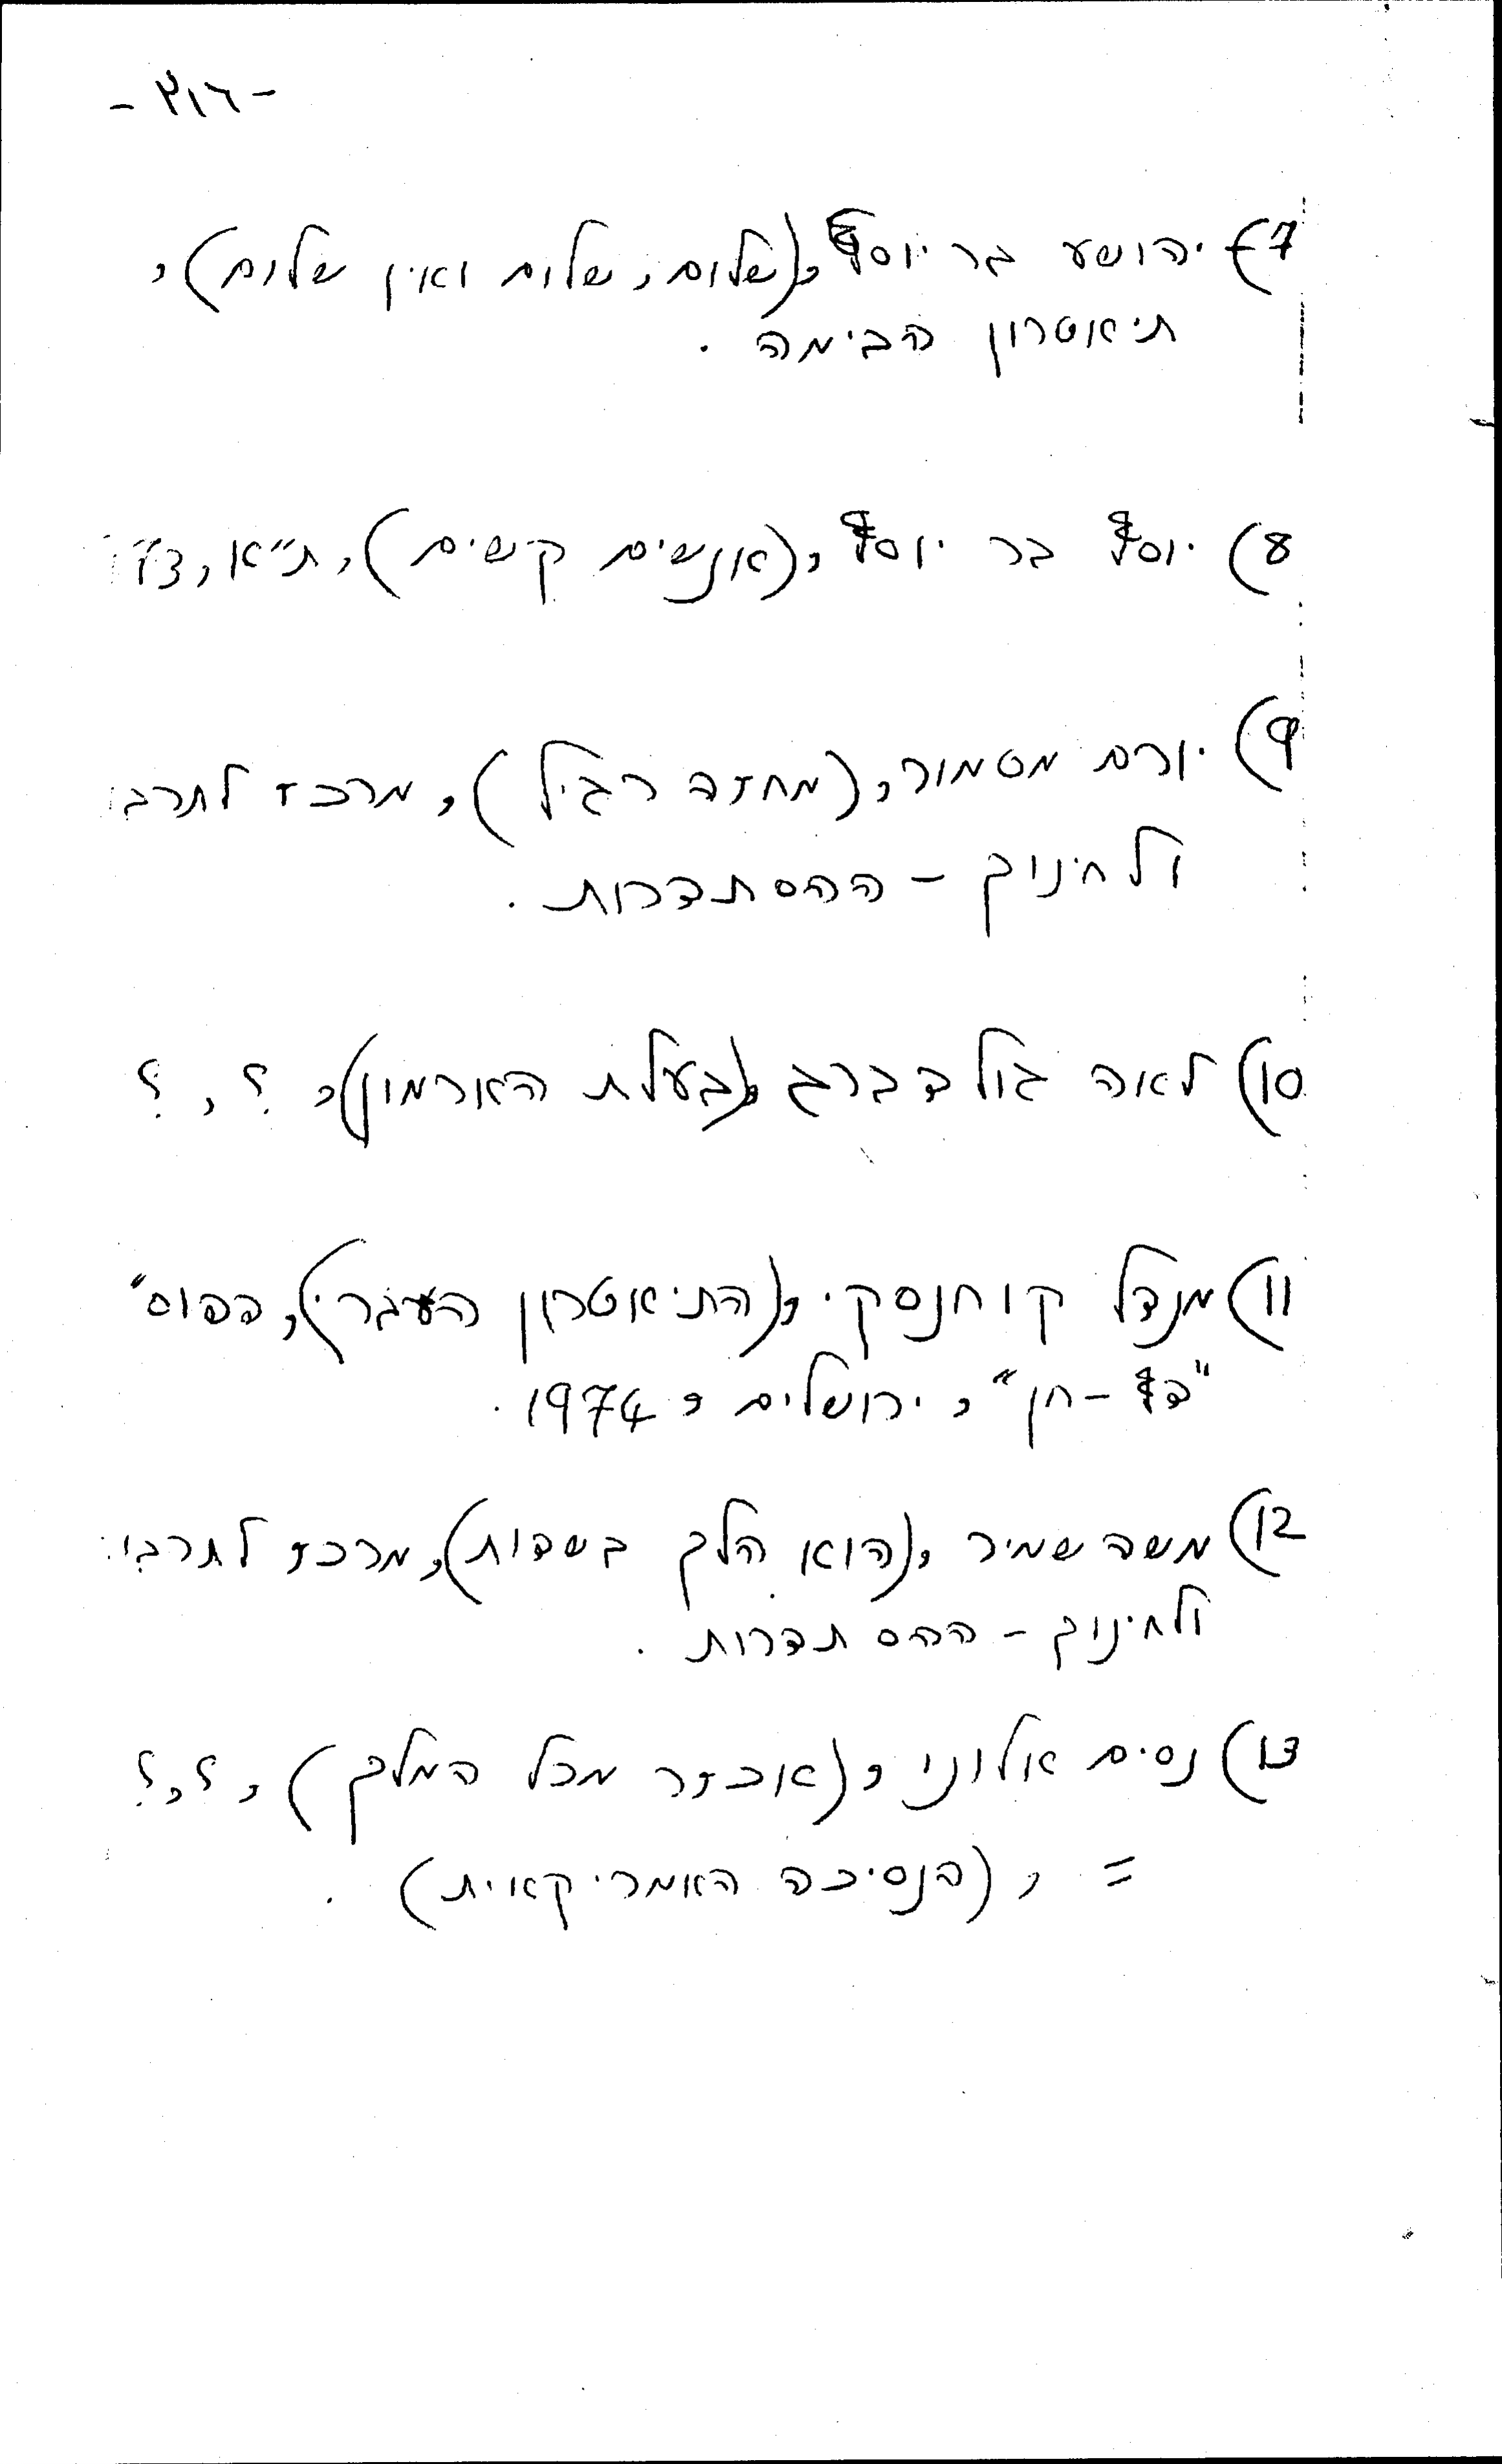 - ٣١٦ -
7) יהושע בר יוסף, (שלום, שלום ואין שלום),
תיאטרון הבימה.
8) יוסף בר יוסף, (אנשים קשים), ת״א,
9) יורם מטמור, (מחזה רגיל), מרכז לתרבו
ולחינוך – ההסתדרות.
10) לאה גולדברג, (בעלת הארמון), ?, ?
11) מנדל קוחנסקי, (התיאטרון העברי), דפוס
"דף-חן", ירושלים, 1974.
12) משה שמיר, (הוא הלך בשדות), מרכז לתרבו
ולחינוך – ההסתדרות.
13) נסים אלוני, (אכזר מכל המלך), ?, ?
= , (הנסיכה האמריקאית).